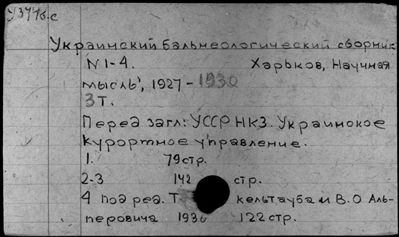 У3775.с
Украинский бальнеологический сборник
N1-4. Харьков, Научная
мысль, 1927-1930
3т.
Перед загл: УССР НКЗ Украинское
курортное управление.
1. 79 стр.
2-3 142 стр.
4 под ред. Т кельтауба и В.О Аль-
перовича 1930 122 стр.